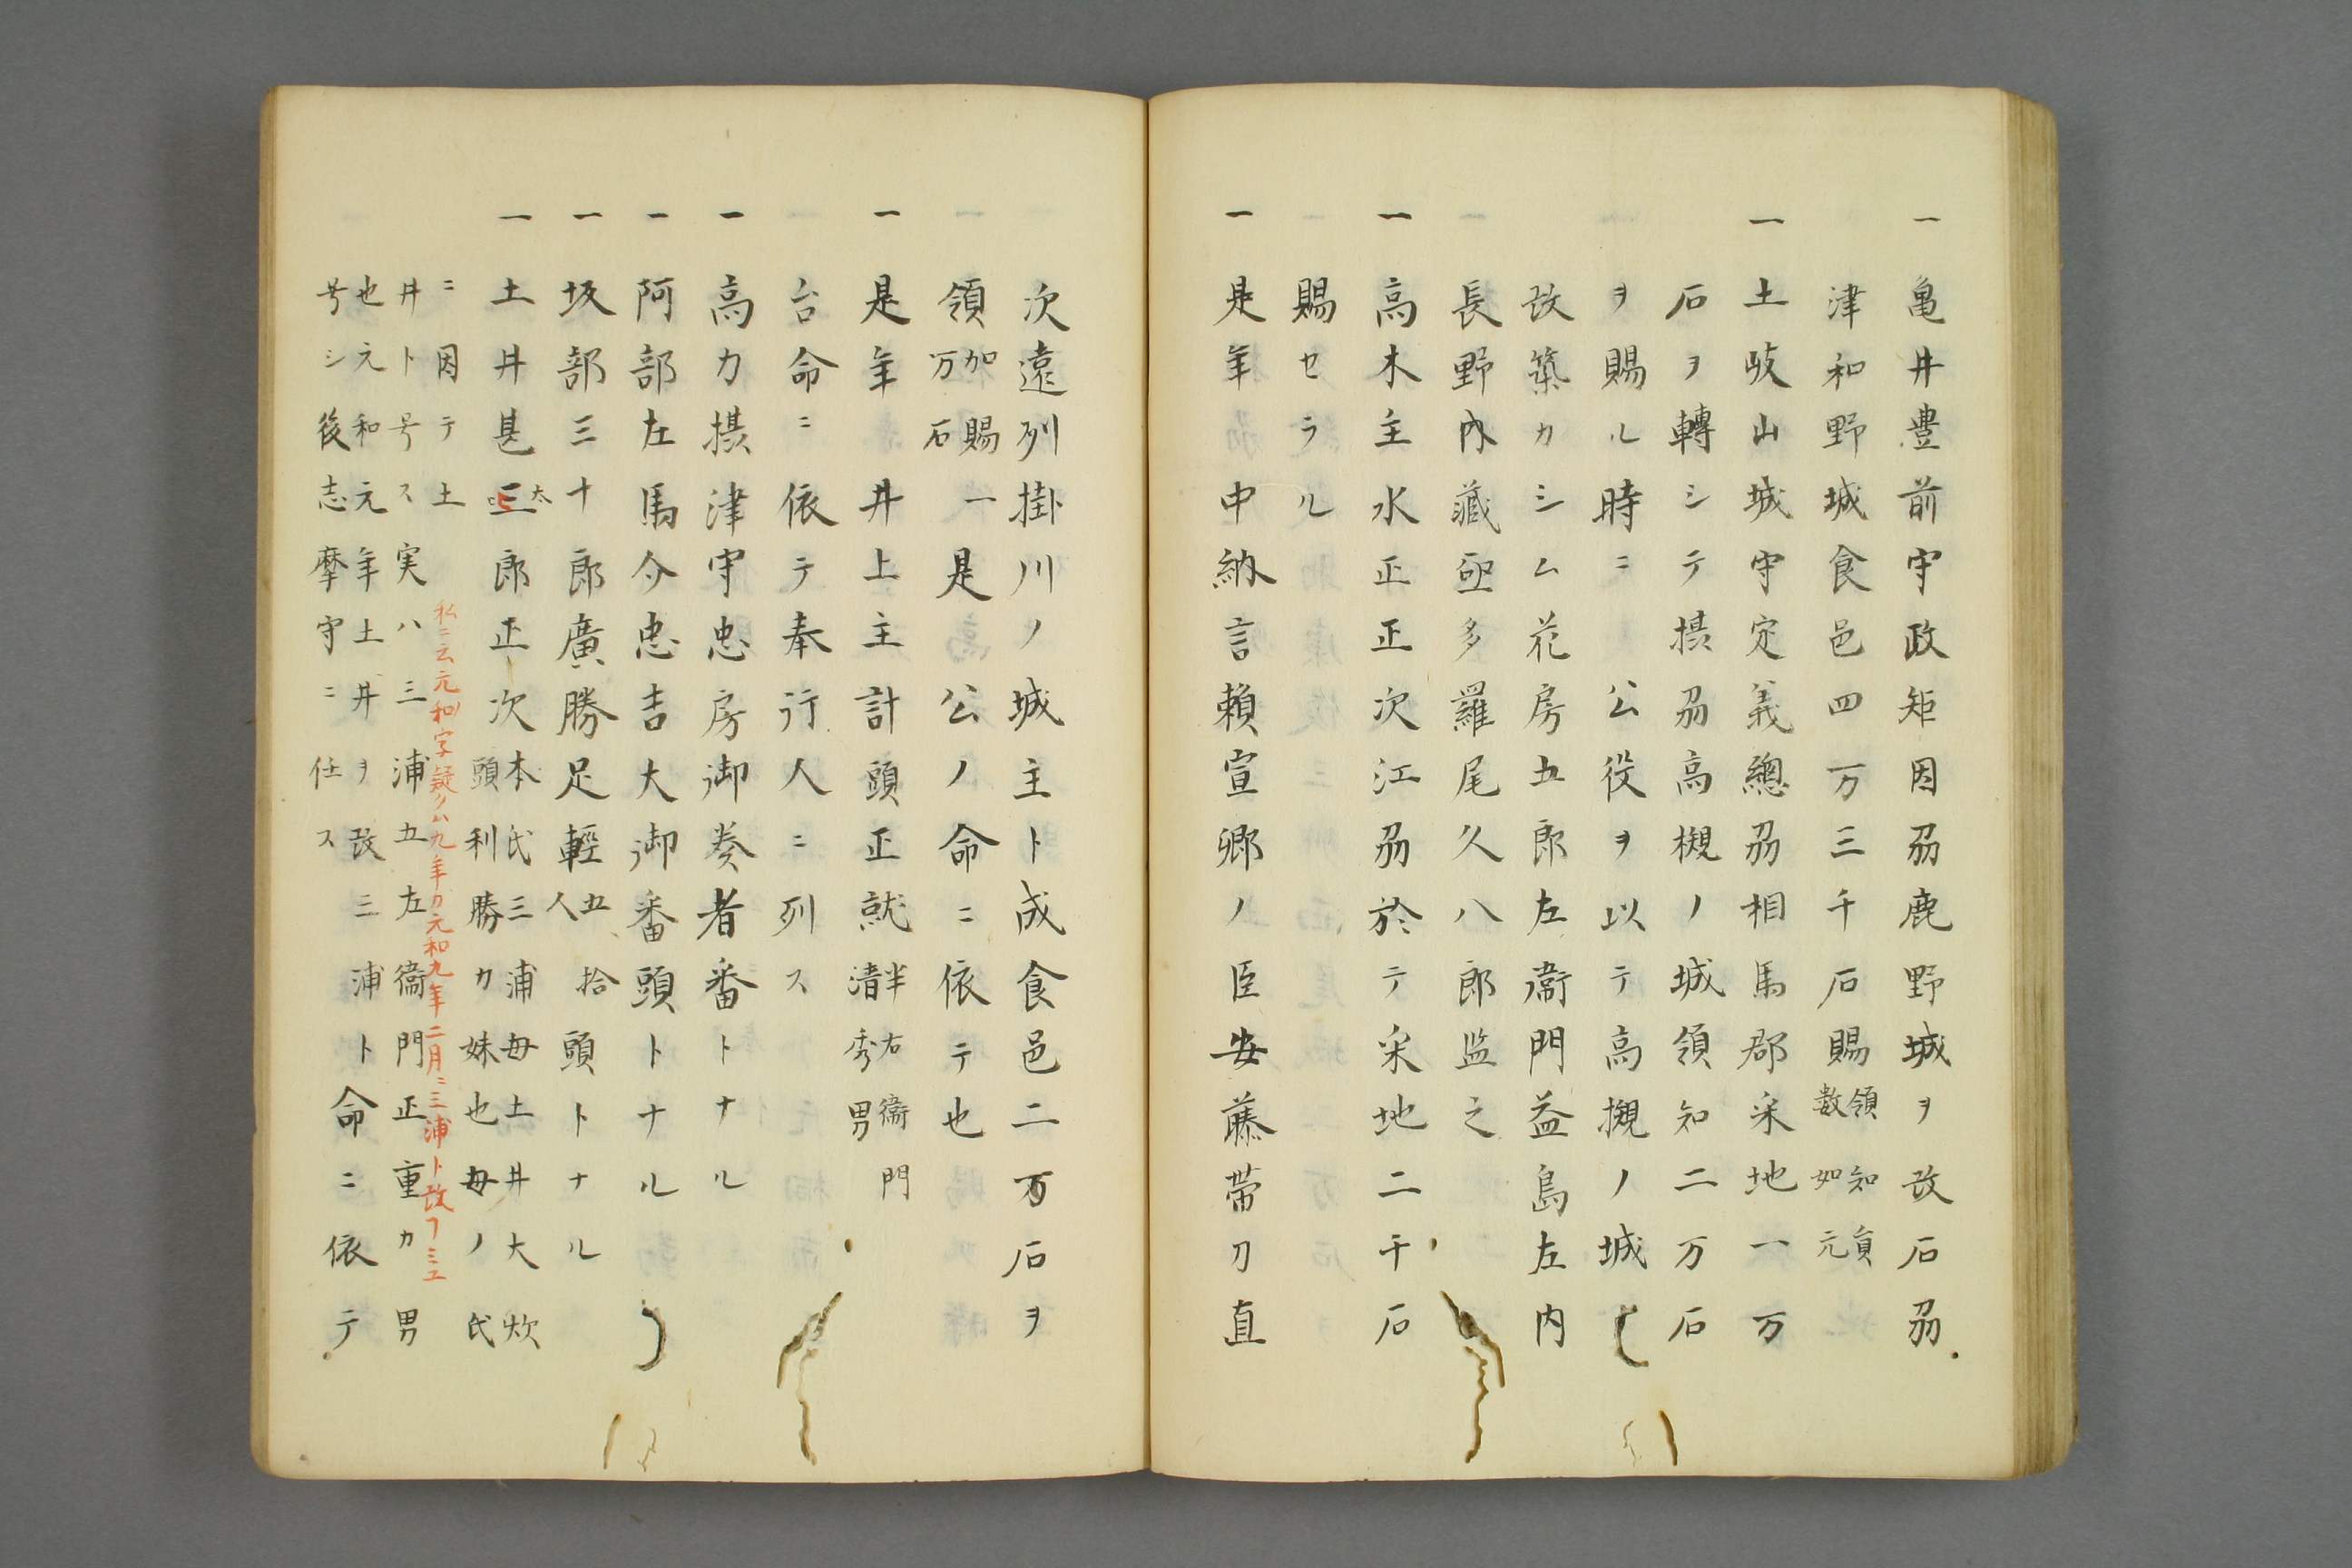 一 亀井豊前守政矩因刕鹿野城ヲ改石刕
津和野城食邑四万三千石賜領知員数如元
一 土岐山城守定義總刕相馬郡采地一万
石ヲ轉シテ摂刕高槻ノ城領知二万石
ヲ賜ル時ニ 公役ヲ以テ高槻ノ城
改築カシム花房五郎左衛門益島左内
長野内藏亟多羅尾久八郎監之
一 高木主水正正次江刕於テ采地二千石
賜セラル
一 是年中納言頼宣卿ノ臣安藤帯刀直
次遠列掛川ノ城主ト成食邑二万石ヲ
領加賜一万石是 公ノ命ニ依テ也
一 是年井上主計頭正就半右衞門清秀男
台命ニ依テ奉行人ニ列ス
一 高力摂津守忠房御奏者番トナル
一 阿部左馬介忠吉大御番頭トナル
一 坂部三十郎廣勝足輕五拾人頭トナル
一 土井甚三郎正次本氏三浦母土井大炊
頭利勝カ妹也母ノ氏
太
ニ因テ土
井ト号ス実ハ三浦五左衞門正重カ男
也元和元年土井ヲ改三浦ト命ニ依テ
号シ後志摩守ニ任ス
私ニ云元和ノ字疑ラハ九年カ元和九年二月ニ三浦ト改ㇷミエ